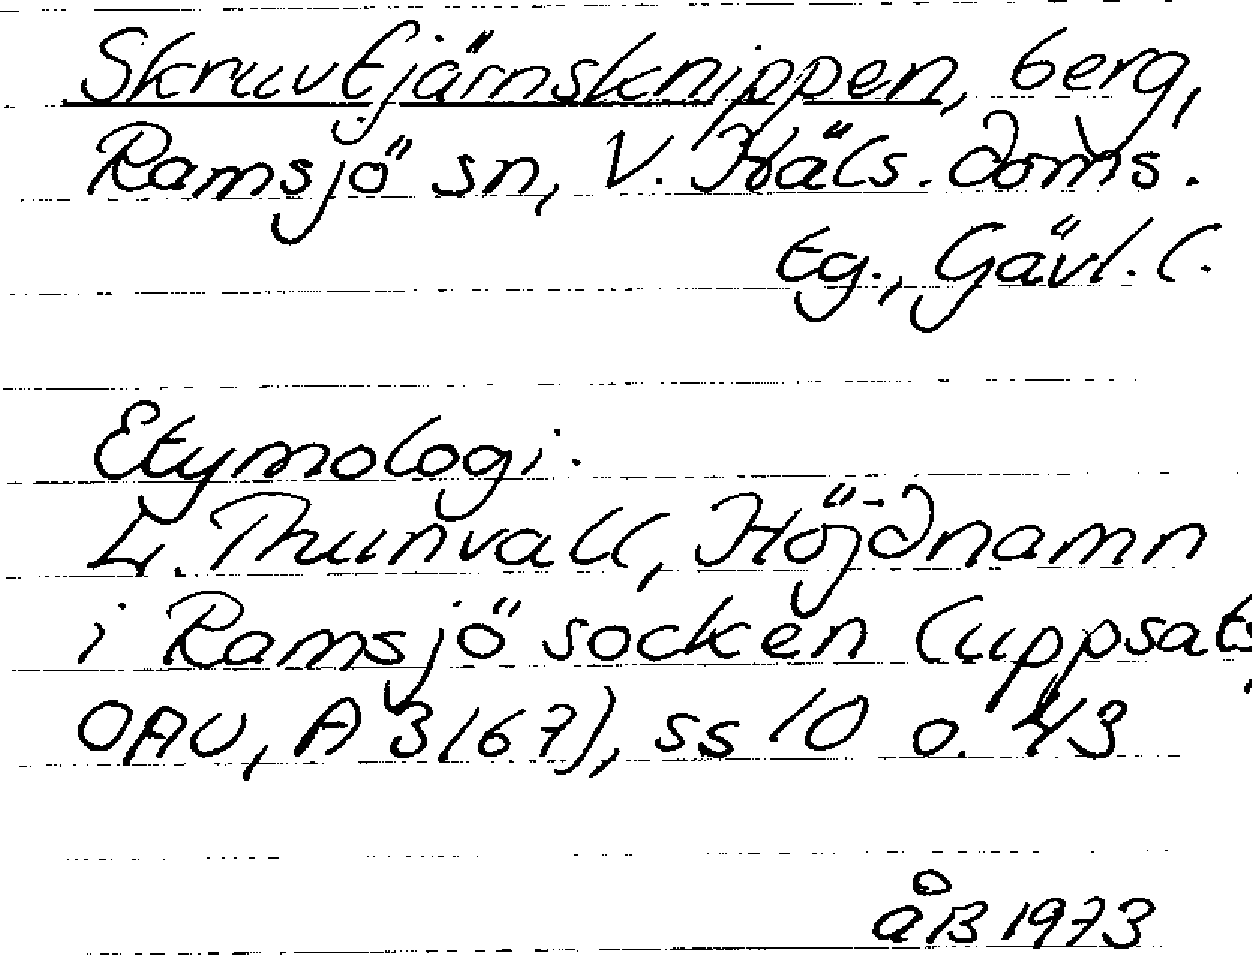 Skruvtjärnsknippen, berg,
Ramsjö sn, V. Häls. doms.
tg., Gävl. l.
Etymologi.
L. Thunvall, Höjdnamn
i Ramsjö socken (uppsats,
OAU, A 3167), ss 10 o. 43
åB 1973